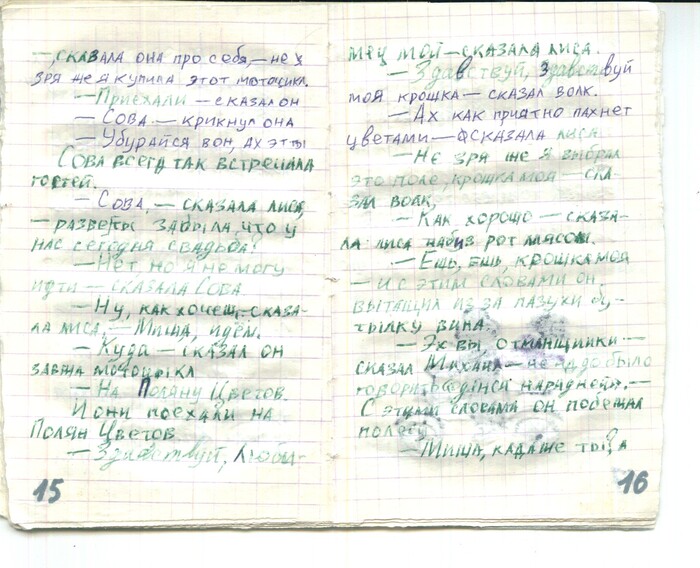 —, сказала она про себя, — не з
зря же я купила этот мотоцикл.
— Приехали — сказал он
— Сова — крикнул она
— Убирайся вон, ах эты
Сова всегда так встречала
гостей.
— Сова, — сказала лиса,
— разве ты забыла, что у
нас сегодня свадьба?
— Нет но я не могу
идти — сказала Сова
— Ну, как хочеш, — сказа-
ла лиса, — Миша, идём.
— Куда — сказал он
завжа мотоцыкл
— На Поляну Цветов.
И они поехали на
Полян Цветов
— Здавствуй, Любы-
15
мец мой — сказала лиса.
— Здавствуй, здавствуй
моя крошка — сказал волк.
— Ах как приятно пахнет
цветами — сказала лиса
— Не зря же я выбрал
это поле, крошка моя — ска-
зал волк,
— Как хорошо — сказа-
ла лиса набив рот мясом.
— Ешь, ешь, крошка моя
— и с этим словами он
вытащил из за пазухи бу-
тылку вина.
— Эх вы, отманщики —
сказал Михаил — не надо было
говорить —
С этими словама он побежал
полегу
— Миша, када же ты? а
16